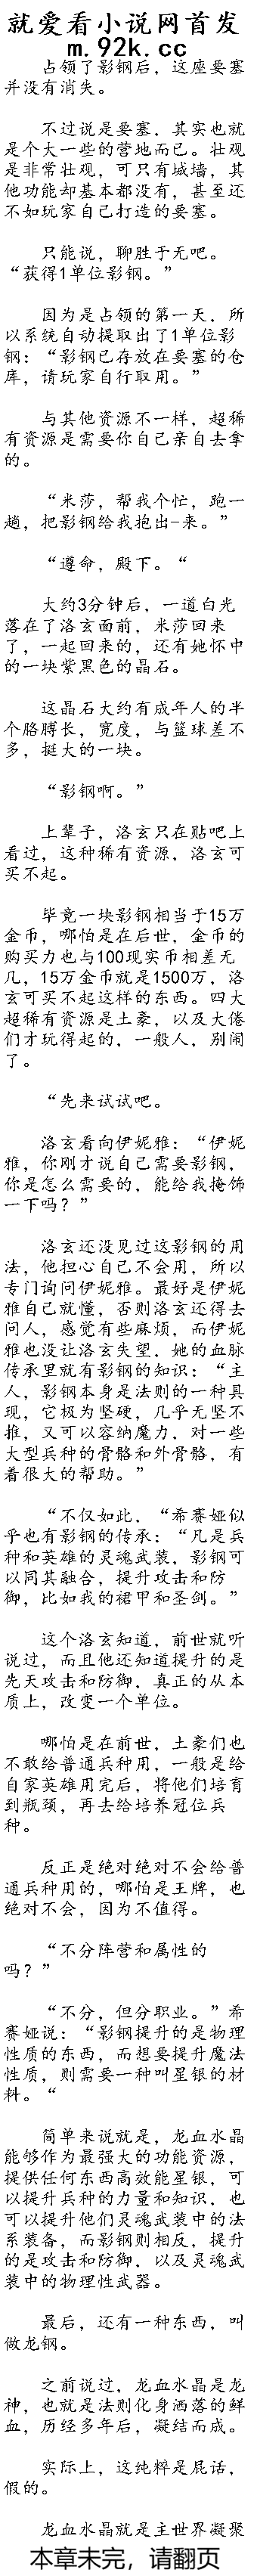 就爱看小说网首发
m.92k.cc
占领了影钢后，这座要塞
并没有消失。
不过说是要塞，其实也就
是个大一些的营地而已。壮观
是非常壮观，可只有城墙，其
他功能却基本都没有，甚至还
不如玩家自己打造的要塞。
只能说，聊胜于无吧。
“获得1单位影钢。”
因为是占领的第一天，所
以系统自动提取出了1单位影
钢：“影钢已存放在要塞的仓
库，请玩家自行取用。”
与其他资源不一样，超稀
有资源是需要你自己亲自去拿
的。
“米莎，帮我个忙，跑一
趟，把影钢给我抱出-来。”
“遵命，殿下。“
大约3分钟后，一道白光
落在了洛玄面前，米莎回来
了，一起回来的，还有她怀中
的一块紫黑色的晶石。
这晶石大约有成年人的半
个胳膊长，宽度，与篮球差不
多，挺大的一块。
“影钢啊。”
上辈子，洛玄只在贴吧上
看过，这种稀有资源，洛玄可
买不起。
毕竟一块影钢相当于15万
金币，哪怕是在后世，金币的
购买力也与100现实币相差无
几，15万金币就是1500万，洛
玄可买不起这样的东西。四大
超稀有资源是土豪，以及大佬
们才玩得起的，一般人，别闹
了。
“先来试试吧。
洛玄看向伊妮雅：“伊妮
雅，你刚才说自己需要影钢，
你是怎么需要的，能给我掩饰
一下吗？”
洛玄还没见过这影钢的用
法，他担心自己不会用，所以
专门询问伊妮雅。最好是伊妮
雅自己就懂，否则洛玄还得去
问人，感觉有些麻烦，而伊妮
雅也没让洛玄失望，她的血脉
传承里就有影钢的知识：“主
人，影钢本身是法则的一种具
现，它极为坚硬，几乎无坚不
推，又可以容纳魔力，对一些
大型兵种的骨骼和外骨骼，有
着很大的帮助。”
“不仅如此，“希赛娅似
乎也有影钢的传承：“凡是兵
种和英雄的灵魂武装，影钢可
以同其融合，提升攻击和防
御，比如我的裙甲和圣剑。”
这个洛玄知道，前世就听
说过，而且他还知道提升的是
先天攻击和防御，真正的从本
质上，改变一个单位。
哪怕是在前世，土豪们也
不敢给普通兵种用，一般是给
自家英雄用完后，将他们培育
到瓶颈，再去给培养冠位兵
种。
反正是绝对绝对不会给普
通兵种用的，哪怕是王牌，也
绝对不会，因为不值得。
“不分阵营和属性的
吗？”
“不分，但分职业。”希
赛娅说：“影钢提升的是物理
性质的东西，而想要提升魔法
性质，则需要一种叫星银的材
料。“
简单来说就是，龙血水晶
能够作为最强大的功能资源，
提供任何东西高效能星银，可
以提升兵种的力量和知识，也
可以提升他们灵魂武装中的法
系装备，而影钢则相反，提升
的是攻击和防御，以及灵魂武
装中的物理性武器。
最后，还有一种东西，叫
做龙钢。
之前说过，龙血水晶是龙
神，也就是法则化身洒落的鲜
血，历经多年后，凝结而成。
实际上，这纯粹是屁话，
假的。
龙血水晶就是主世界凝聚
本章未完，请翻页